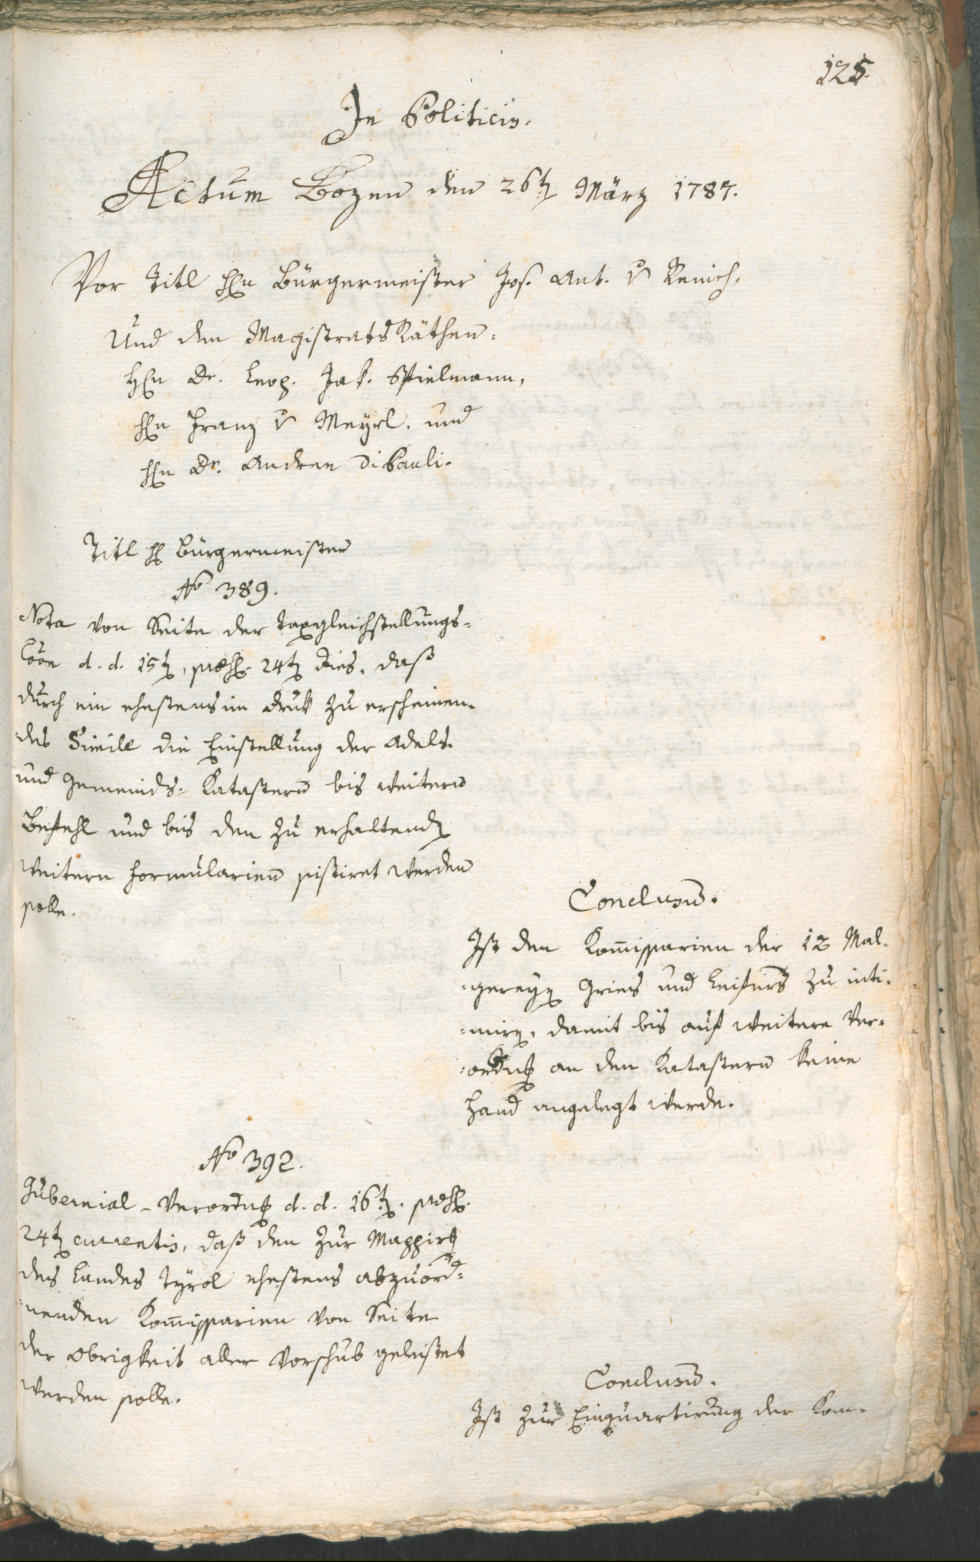 125.
In Politicis.
Actum Bozen den 26ten März 1787.
Vor Titl Hn Bürgermeister Jos. Ant. v Remich,
Und den Magistrats Räthen:
Hn Dr. Leop. Jak. Spielmann,
Hn Franz v Meÿrl. und
Hn Dr. Andren Di Pauli.
Titl H Bürgermeister
No 389.
Nota von Seite der Taxgleichstellungs-
Coon d. d. 15t, præs. 24t dies, daß
durch ein ehestens im Druk zu erscheinen-
des Simile die Einstellung der Adels-
und Gemeinds-Katastern bis weitern
Befehl und bis den zu erhaltenden
weitern Formularien sistiret werden
solle.
Conclusum.
Ist den Kommissarien der 12 Mal-
-greyen Gries und Leifers zu inti-
-miren, damit bis auf weitere Ver-
-ordnung an den Katastern keine
Hand angelegt werde.
No 392.
Gubernial-Verordnung d. d. 16t. præs.
24t currentis, daß den zur Mappirung
des Landes Tÿrol ehestens abzuord-
nenden Kommissarien von Seite
der Obrigkeit aller Vorschub geleistet
werden solle.
Conclusum.
Ist zur Einquartirung der Kom-